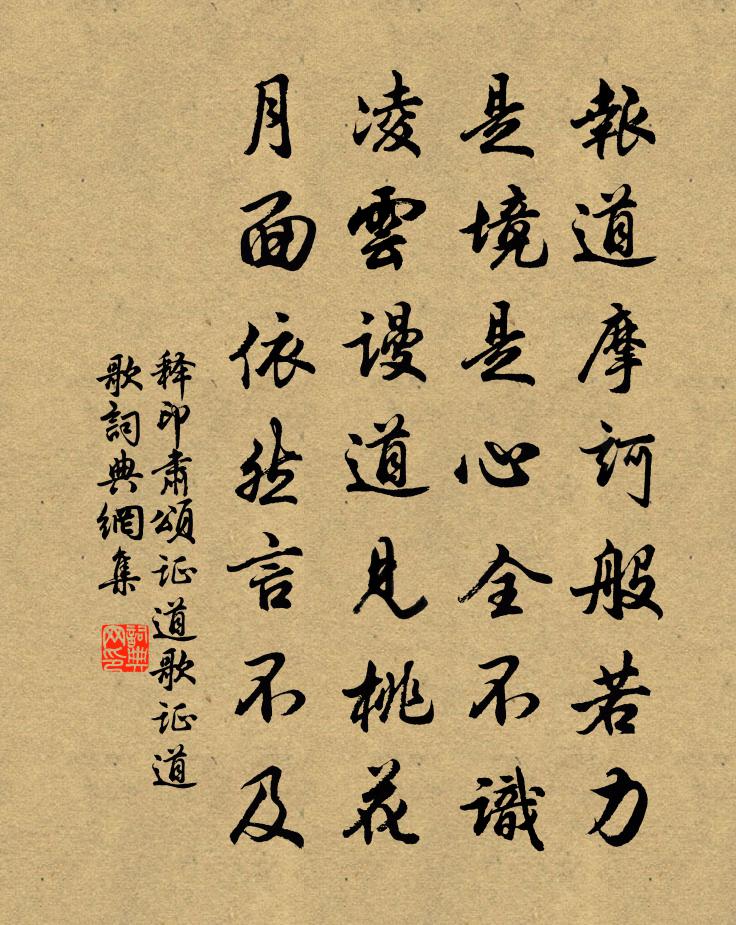 報道摩訶般若力
是境是心全不識
凌雲謾道見桃花
月面依然言不及
释印肅頌证道歌证道
歌詞典網集
詞典网印